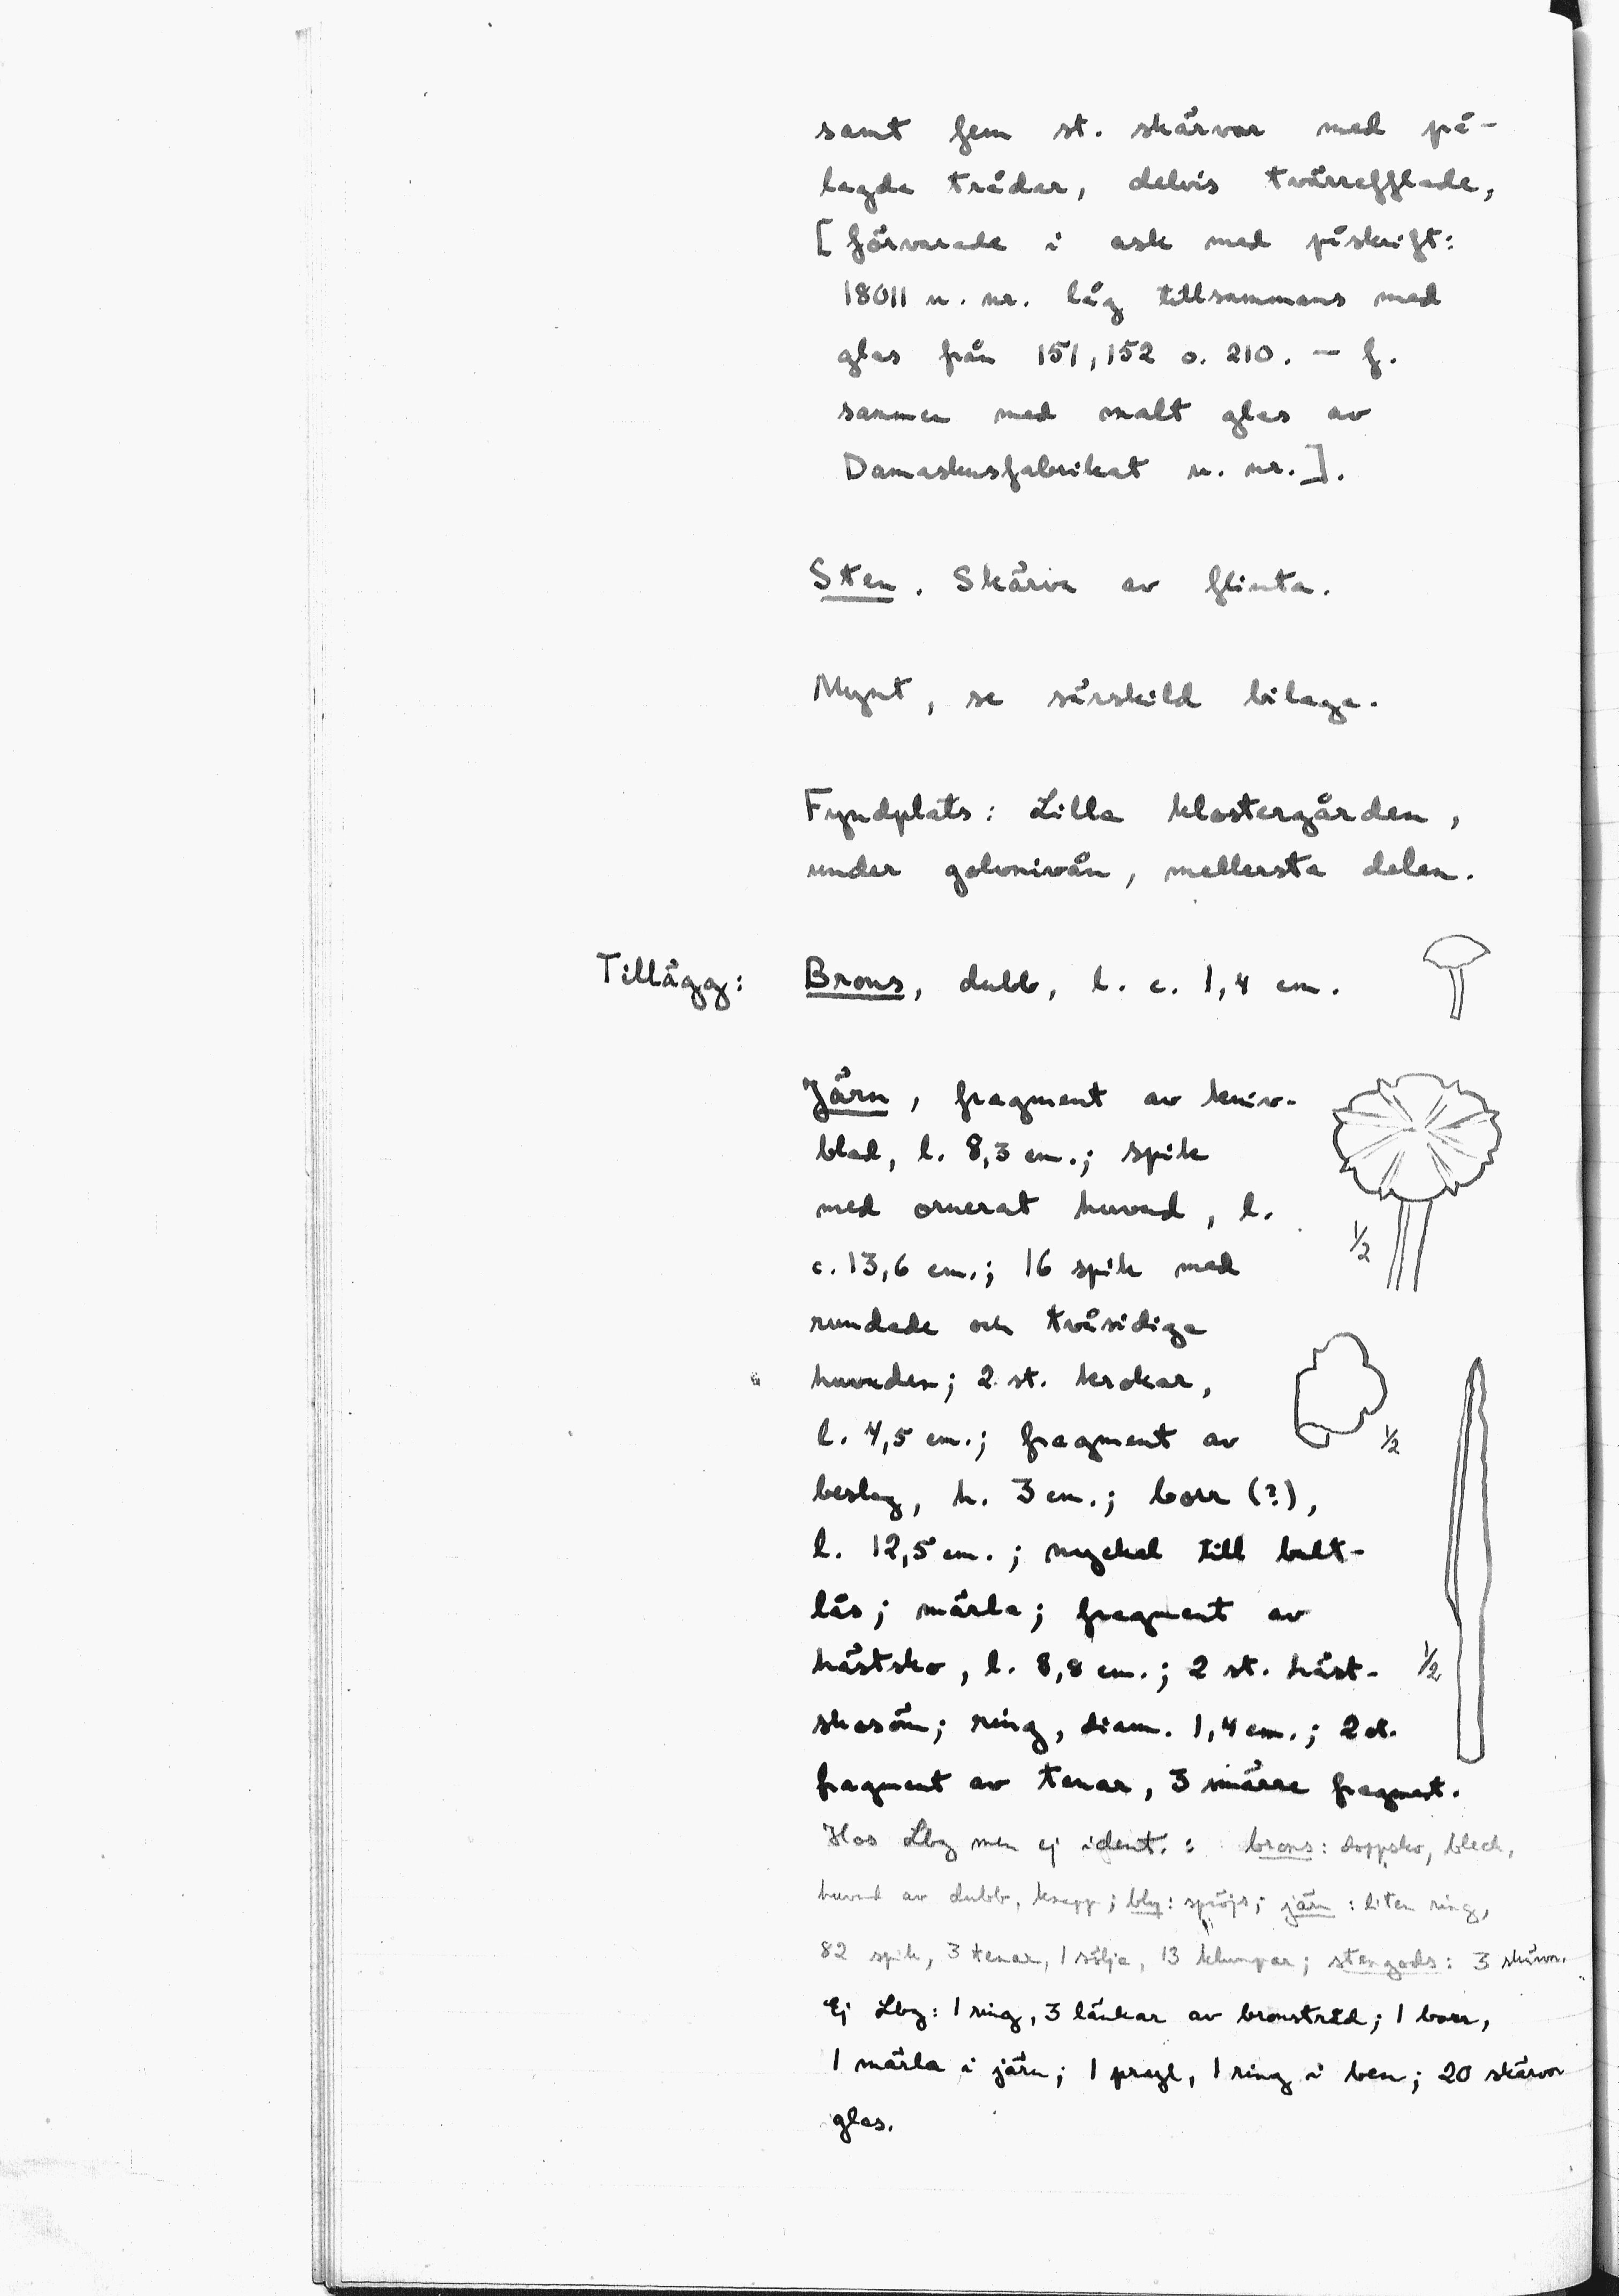 samt fem st. skärvor med på-
lagda trådar, delvis tvärrefflade,
[förvarade i ask med påskrift:
18011 u. nr. låg tillsammans med
glas från 151, 152 o. 210. — f.
samman med malt glas av
Damaskusfabrikat u. nr.].
Sten. Skärva av flinta.
Mynt, se särskild bilaga.
Fyndplats: Lilla klostergården,
under golvnivån, mellersta delen.
Tillägg: Brons, dubb, l. c. 1,4 cm.
Järn, fragment av kniv-
blad, l. 8,3 cm.; spik
med ornerat huvud, l.
1/2
c. 13,6 cm.; 16 spik med
rundade och tvåsidiga
huvuden; 2 st. krokar,
l. 4,5 cm.; fragment av
1/2
beslag, h. 3 cm.; borr (?),
l. 12,5 cm.; nyckel till bult-
lås; märla; fragment av
hästsko, l. 8,8 cm.; 2 st. häst-
1/2
skosöm; ring, diam. 1,4 cm.; 2 st.
fragment av tenar, 3 smärre fragment.
Hos Lbg men ej ident.: brons: doppsko, bleck,
huvud av dubb, knapp; bly: spröjs; järn: liten ring,
82 spik, 3 tenar, 1 sölja, 13 klumpar; stengods: 3 skärvor.
Ej Lbg: 1 ring, 3 länkar av bronstråd; 1 borr,
1 märla i järn; 1 pryl, 1 ring i ben; 20 skärvor
glas.